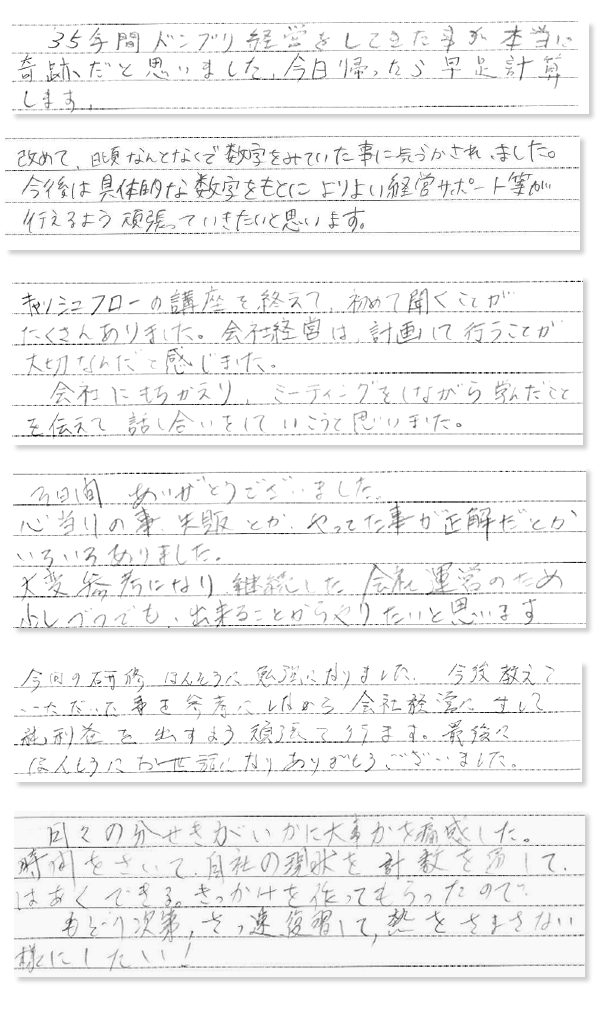 35年間ドンブリ経営をしてきた事が本当に
奇跡だと思いました。今日帰ったら早足計算
します。
改めて、日頃なんとなくで数字をみていた事に気づかされました。
今後は具体的な数字をもとによりよい経営サポート等が
行えるよう頑張っていきたいと思います。
キャッシュフローの講座を終えて、初めて聞くことが
たくさんありました。会社経営は、計画して行うことが
大切なんだと感じました。
会社にもちかえり、ミーティングをしながら学んだこと
を伝えて話し合いをしていこうと思いました。
3日間 ありがとうございました。
心当りの事、失敗とか、やってた事が正解だとか
いろいろありました。
大変参考になり継続した会社運営のため
少しづつでも、出来ることからやりたいと思います
今回の研修ほんとうに勉強になりました。今後教えて
いただいた事を参考にしながら会社経営にそして
純利益を出すよう頑張って行ます。最後に
ほんとうにお世話になりありがとうございました。
日々の分せきがいかに大事かを痛感した。
時間をさいて、自社の現状を計数を通して、
はあくできる。きっかけを作ってもらったので、
もどり次第、さっ速復習して、熱をさまさない
様にしたい!